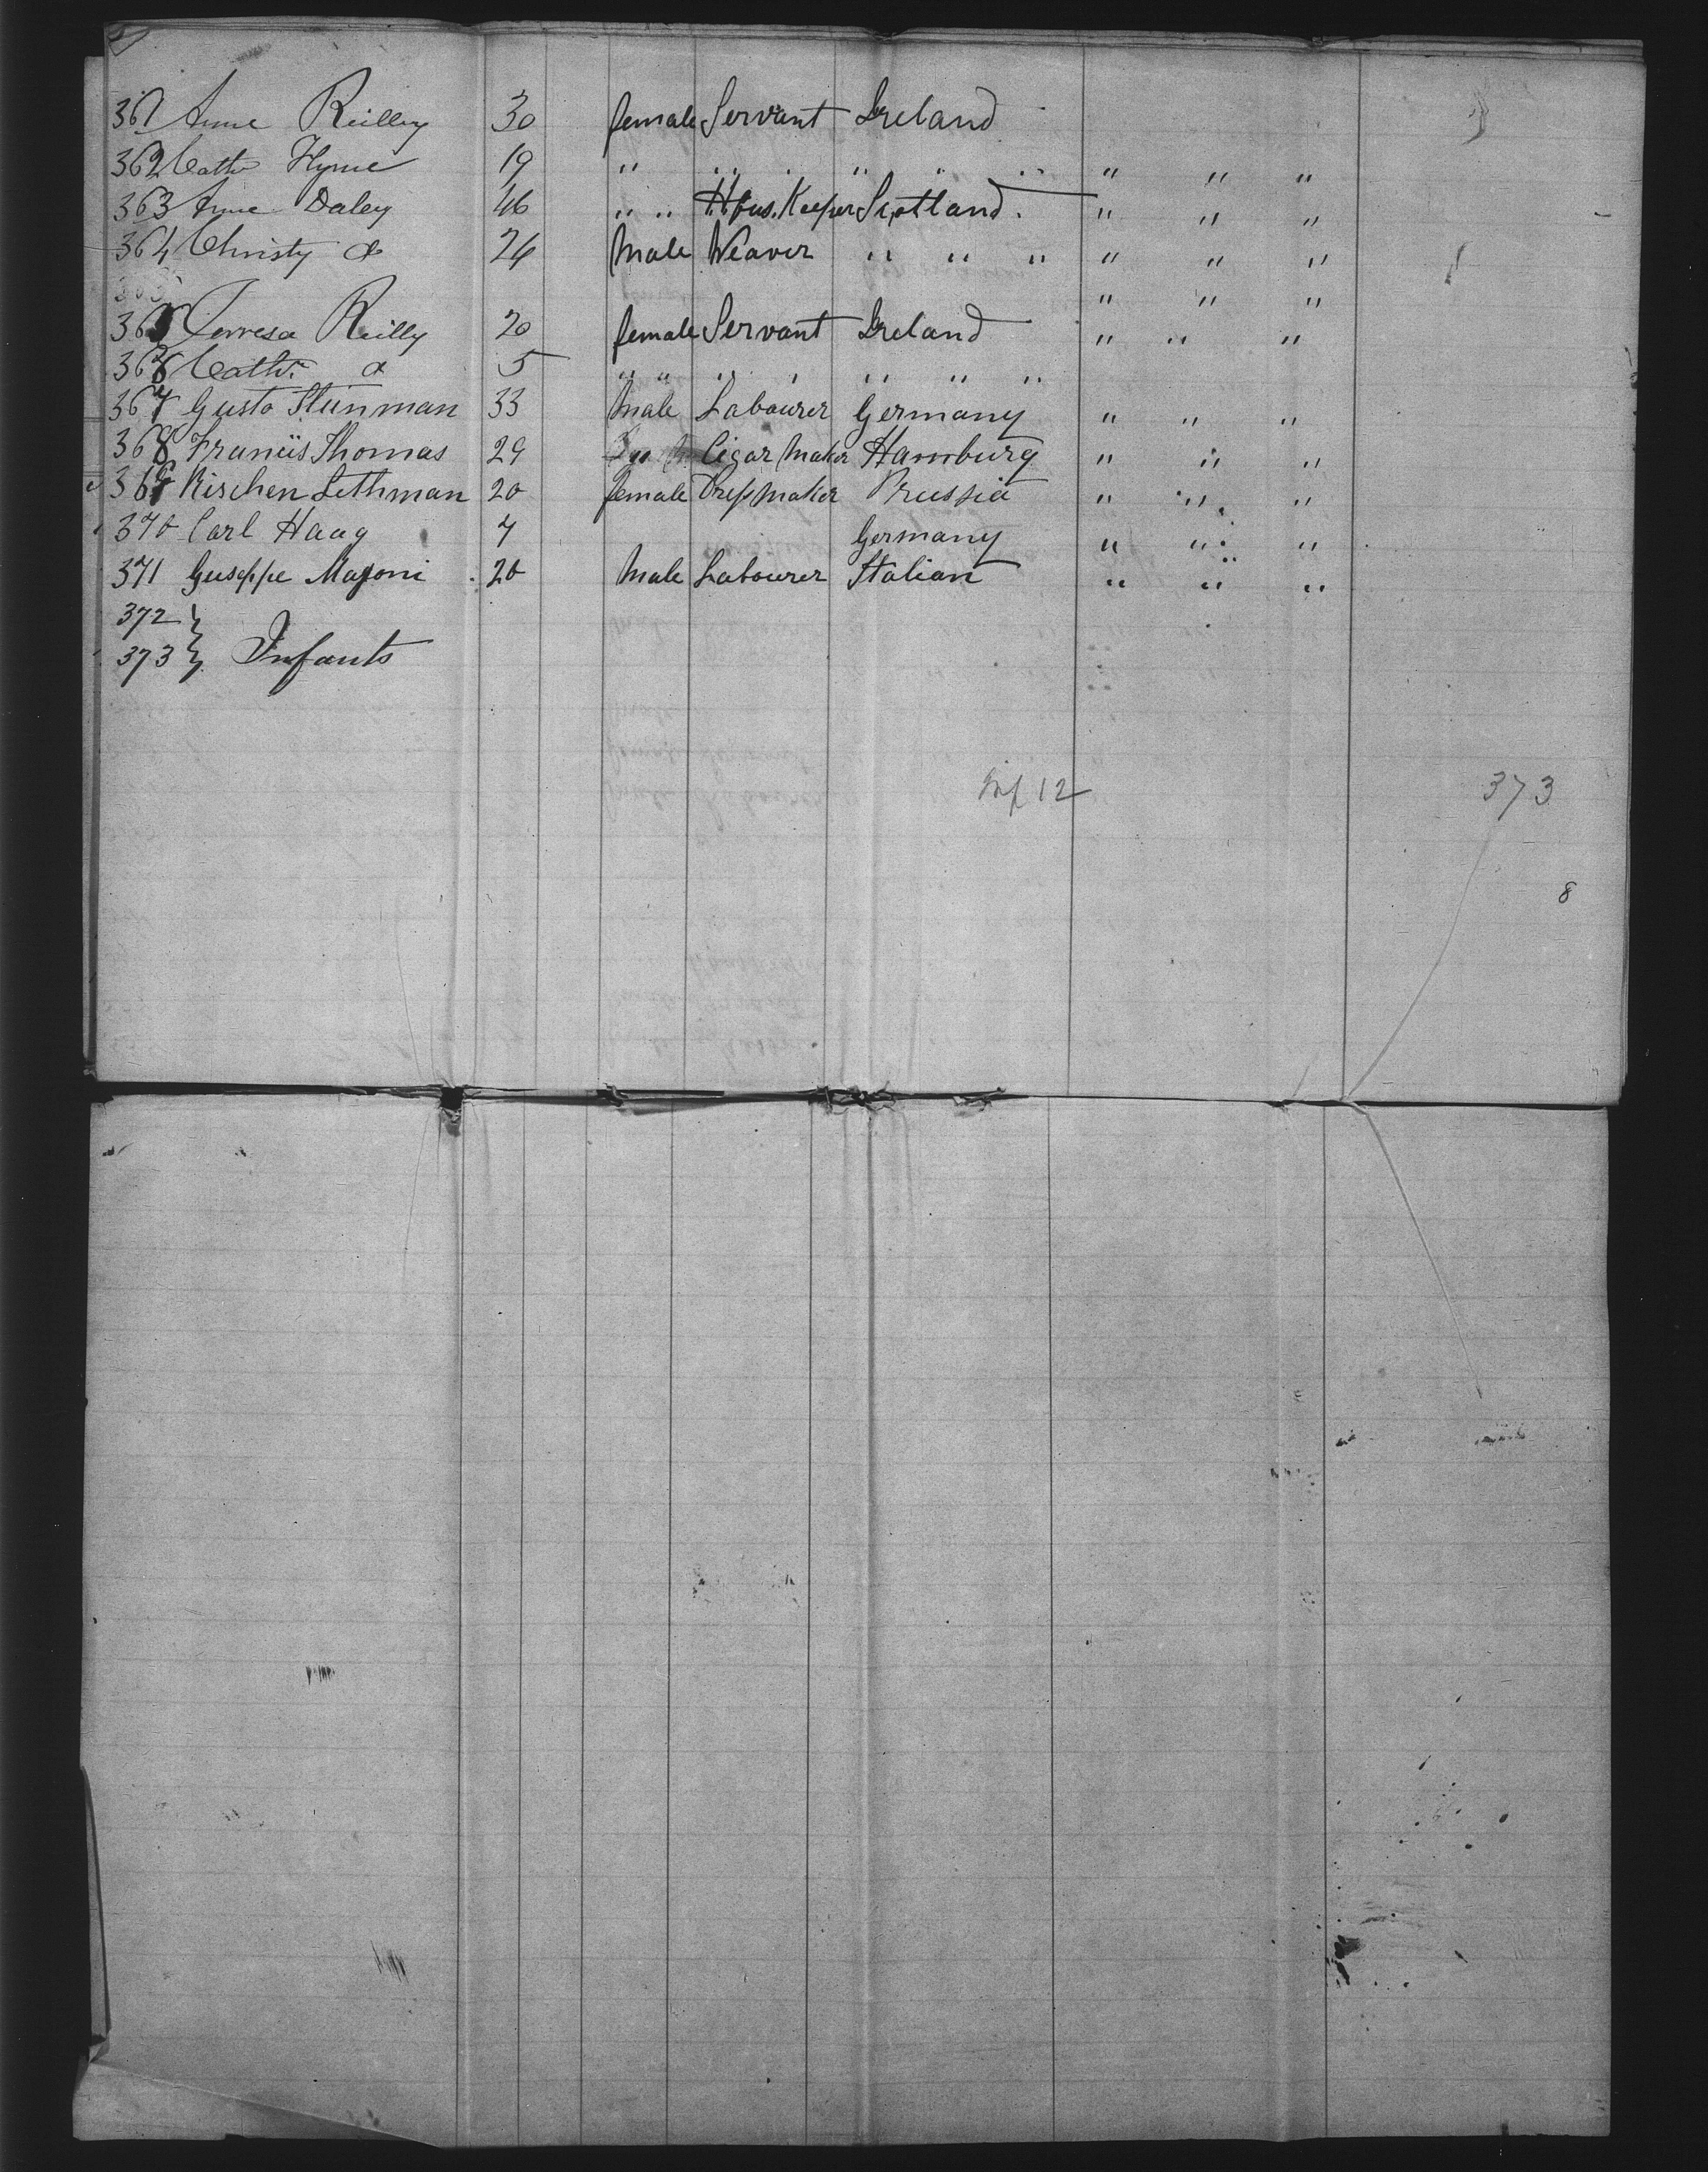 361 Anne Reilly 30 female Servant Ireland
362 Cath Flynne 19 " " " " " " " " "
363 Anne Daley 46 " " Hous. Keeper Scotland. " " "
364 Christy do 24 Male Weaver " " " " " "
" " "
365 Terresa Reilly 20 female Servant Ireland " " "
366 Cath. do 5 " " " " " " "
367 Gusto Stunman 33 Male Labourer Germany " " "
368 Francis Thomas 29 Cigar Maker Hamburg " " "
369 Rischen Lethman 20 female Dressmaker Prussia " " "
370 Carl Haag 7 Germany " " "
371 Guseppe Mazoni 20 Male Labourer Italian " " "
372 }
373 } Infants
Inf 12 373
8